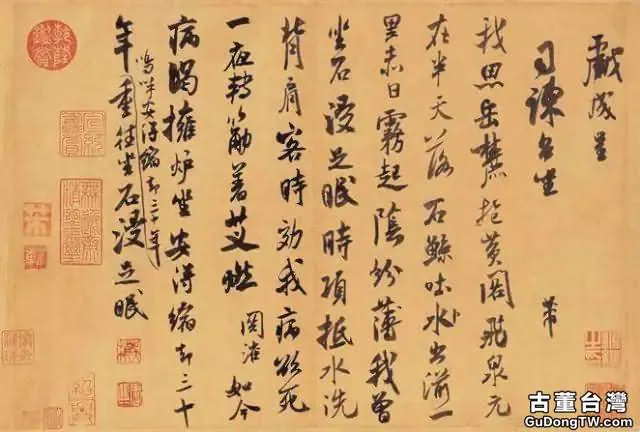 戲成呈
司諫台坐
芾
我思岳麓抱黃閣飛泉元
在半天落石鯨吐水出湔一
里赤日霧起蔭紛薄我曾
坐石浸足眠時項抵水洗
背肩客時効我病欲死
一夜轉筋著艾燃關淮如今
病渴擁爐坐安得縮却三十
嗚呼安得縮却三十年
年重往坐石浸足眠
古董台灣
GuDongTW.com